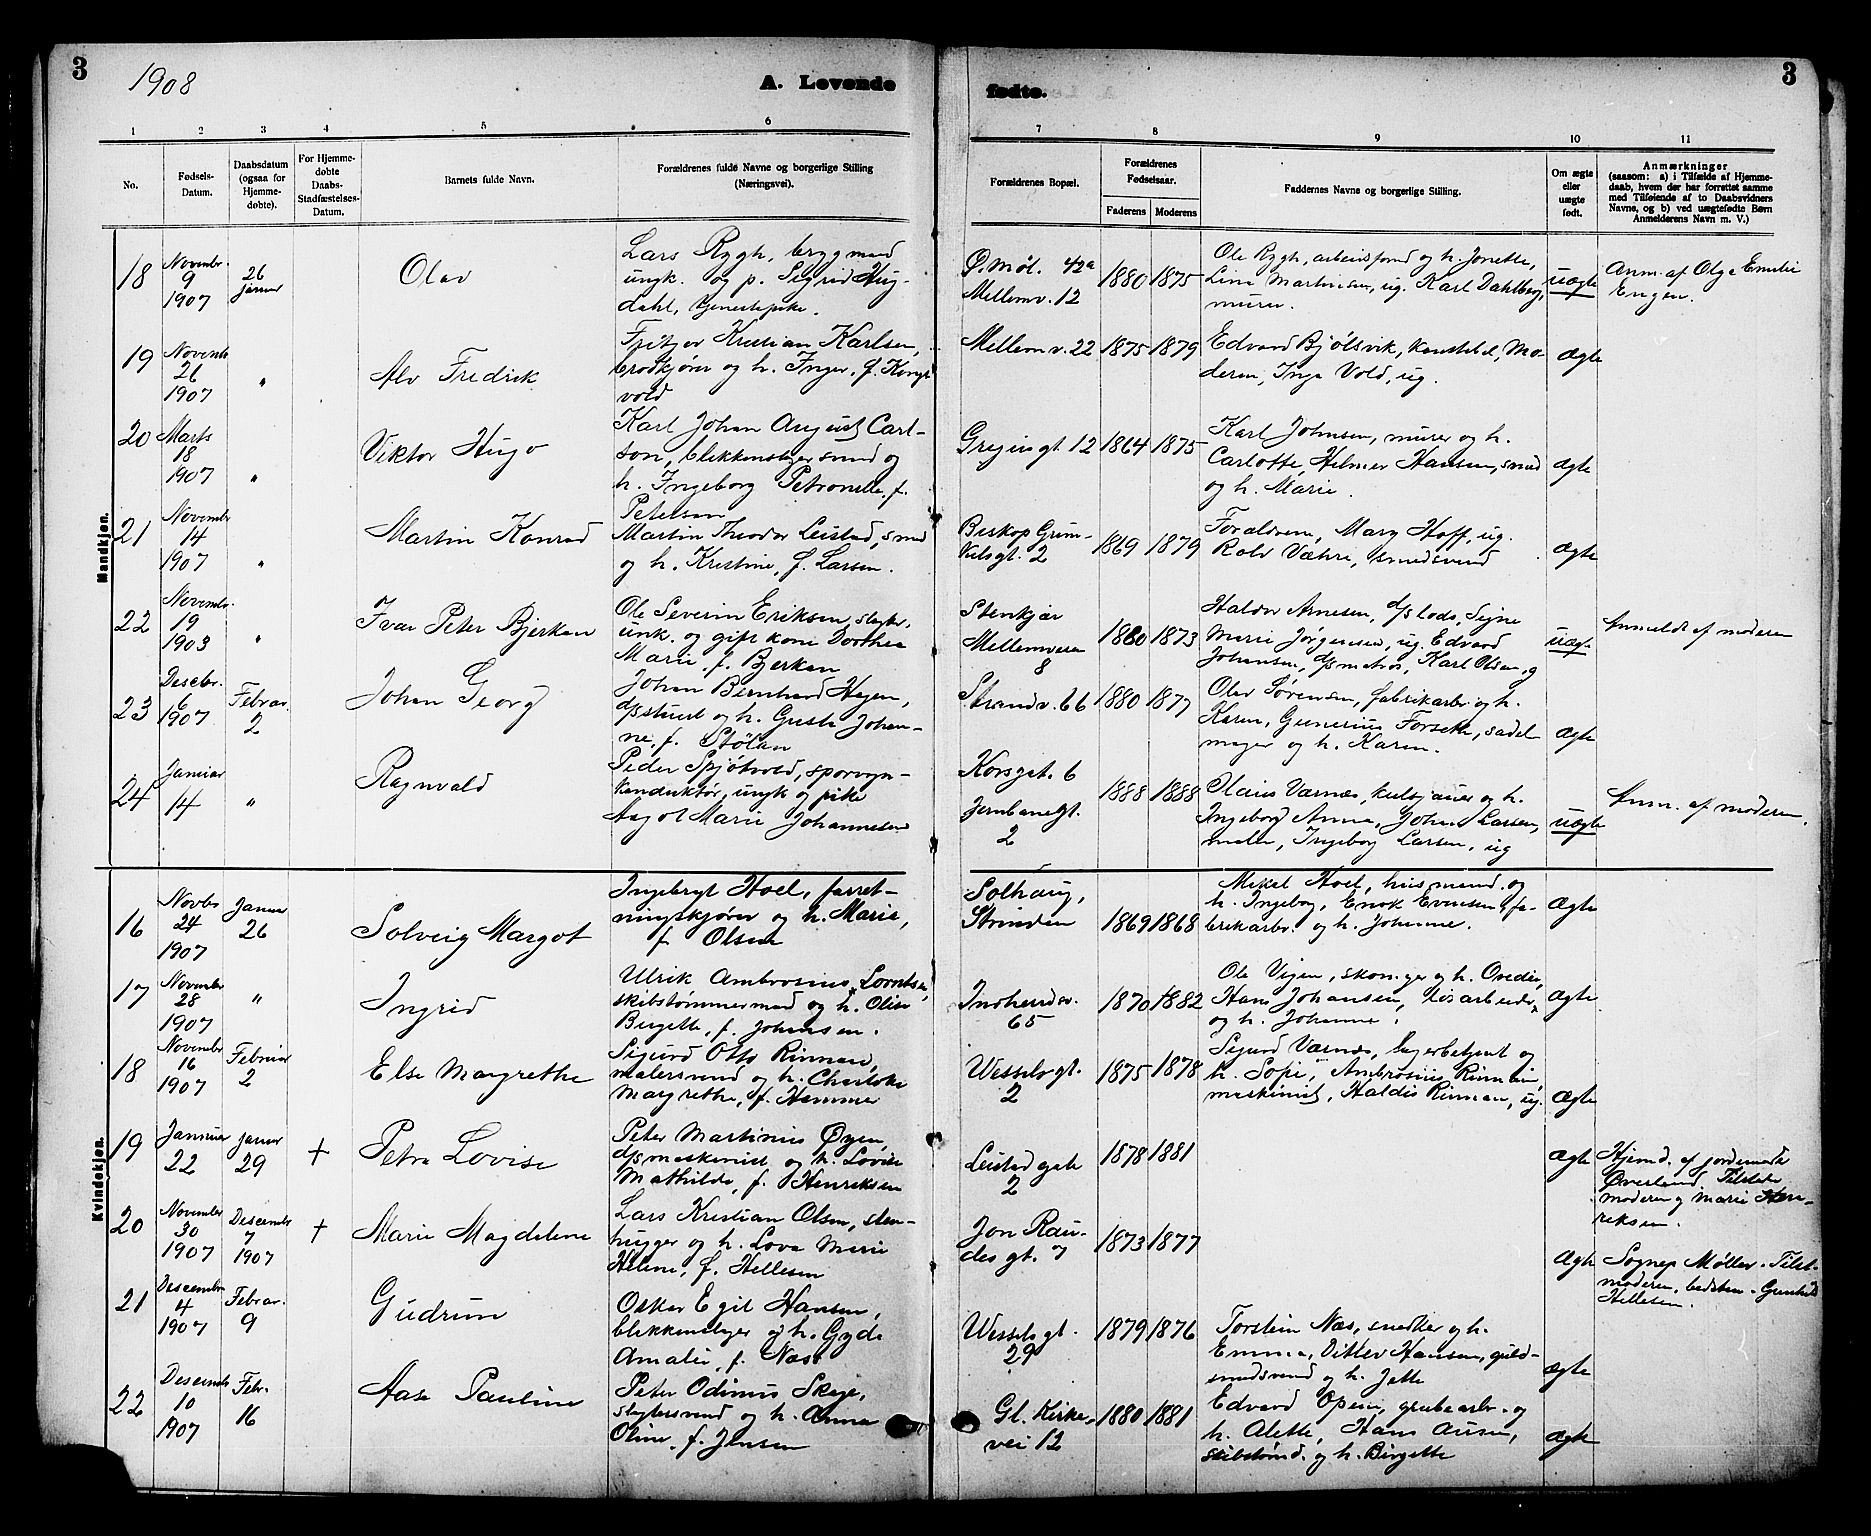 3
1908
A. Levende
fødte.
3
1 2 3 4 5 6 7 8 9 10 11
No.
Fødsels-
Datum.
Daabsdatum
(ogsaa for
Hjemme-
døbte).
For Hjemme-
døbte
Daabs-
Stadfæstelses-
Datum.
Barnets fulde Navn.
Forældrenes fulde Navne og borgerlige Stilling
(Næringsvei).
Forældrenes Bopæl.
Forældrenes
Fødselsaar.
Faderens Moderens
Faddernes Navne og borgerlige Stilling.
Om ægte
eller
uægte
født.
Anmærkninger
(saasom: a) i Tilfælde af Hjemme-
daab, hvem der har forrettet samme
med Tilføiende af to Daabsvidners
Navne, og b) ved uægtefødte Børn
Anmelderens Navn m. V.)
Mandkjøn.
18
Novembr.
9
1907
26
Januar
Olav
Lars Rygh, brygmand
ungk. og p. Sigrid Hug-
dahl, tjenestepike.
Ø. Møl. 42a
Mellemv. 12
1880 1875
Ole Rygh, arbeidsformd og h. Jonette,
Line Martinsen, ug. Karl Dahlberg,
murer.
uægte
Anm. af Olga Emelie
Engen.
19
Novemb
26
1907
"
Alv Fredrik
Fritjov Kristian Karlsen,
brødkjører og h. Inger, f. Kongs
vold
Mellemv. 22
1875 1879
Edvard Bjølsvik, konstbel, Mo-
deren, Inga Vold, ug.
ægte
20
Marts
18
1907
"
Viktor Hugo
Karl Johan August Carl-
son, blikkenslagersvend og
h. Ingeborg Petronelle, f.
Petersen
Gregusgt. 12
1864 1875
Karl Johnsen, murer og h.
Carlotte, Helmer Hansen, smed
og h. Marie.
ægte
21
Novembr
14
1907
"
Martin Konrad
Martin Theodor Leistad, smed
og h. Kristine, f. Larsen.
Biskop Grim-
kelsgt. 2
1869 1879
Forældrene, Mary Hoff, ug.
Rolv Væhre, smedsvend
ægte
22
Novembr.
19
1903
"
Ivar Peter Bjerkan
Ole Severin Eriksen, slagter,
unk. og gift kone Dorthea
Marie, f. Bjerkan
Stenkjær
Mellemveien
8
1880 1873
Haldor Arnesen, d/s lods, Signe
Marie Jørgensen, ug. Edvard
Johansen, d/s matros, Karl Olsen, og
uægt.
Anmeldt af moderen
23
Desebr.
6
1907
Februar.
2
Johan Georg
Johan Bernhard Hagen,
d/s stuert og h. Grete Johan-
ne, f. Stølan
Strandv. 66
1880 1877
Olav Sørensen, fabrikarb. og h.
Karen, Gunerius Forseth, sadel
mager og h. Karen.
ægte
24
Januar
14
"
Ragnvald
Peder Spjøtvold, sporvogn-
konduktør, ungk og pike
Aagot Marie Johannesen
Korsgat. 6
Jernbanegt.
2
1888 1888
Olaus Værnes, kulsjauer og h.
Ingeborg Anna, Johan Larsen,
maler, Ingeborg Larsen, ug
uægte
Anm. af moderen.
Kvindekjøn.
16
Novbr
24
1907
Januar
26
Solveig Margot
Ingebrigt Hoel, forret-
ningskjører og h. Marie,
f. Olsen
Solhaug,
Strinden
1869 1868
Mikal Hoel, husmand og
h. Ingeborg, Enok Evensen, fa-
brikarbr. og h. Johanne.
ægte
17
Novembr
28
1907
"
Ingrid
Ulrik Ambrosius Lorntsen,
skibstømmermand og h. Oline
Birgette, f. Johansen.
Indherredsv.
65
1870 1882
Ole Vigen, skomager og h. Ovedie,
Hans Johansen, løsarbeider
og h. Johanne.
ægte
18
Novembr
16
1907
Februar
2
Else Margrethe
Sigurd Otto Rinnan,
malersvend og h. Charlotte
Margrethe, f. Hammer
Wesselsgt.
2
1875 1878
Sigurd Værnes, lagerbetjent og
h. Sofie, Ambrosius Rinnan,
maskinist, Haldis Rinnan, ug.
ægte
19
Januar
22
Januar
29
+
Petra Lovise
Peter Martinius Øyen,
d/s maskinist og h. Lovise
Mathilde, f. Henriksen
Leistadgate
2
1878 1881
ægte
Hjemd. af jordemoder
Øverland. Tilstede
moderen og Marie Hen-
riksen.
20
November
30
1907
Descembr
7
1907
+
Marie Magdelene
Lars Kristian Olsen, sten-
hugger og h. Lova Marie
Helene, f. Hellesen
Jon Rau-
des gt. 7
1873 1877
ægte
Sognep Møller. Tilst.
moderen, bedstem. Gunhild
Hellesen.
21
Descembr
4
1907
Februar.
9
Gudrun
Oskar Egil Hansen,
blikkenslager og h. Gyda
Amalie, f. Næss
Wesselsgt.
29
1879 1876
Torstein Næs, snedker og h.
Emma, Ditlev Hansen, guld-
smedsvend og h. Jette
ægte
22
Descemb
10
1907
Febr.
16
Aase Pauline
Peter Odinius Skaje,
slagtersvend og h. Anna
Oline, f. Jensen
Gl. Kirke-
vei 12
1880 1881
Edvard Opem, grubearb. og
h. Alette, Hans Ausen,
skibstømd. og h. Birgette
ægte